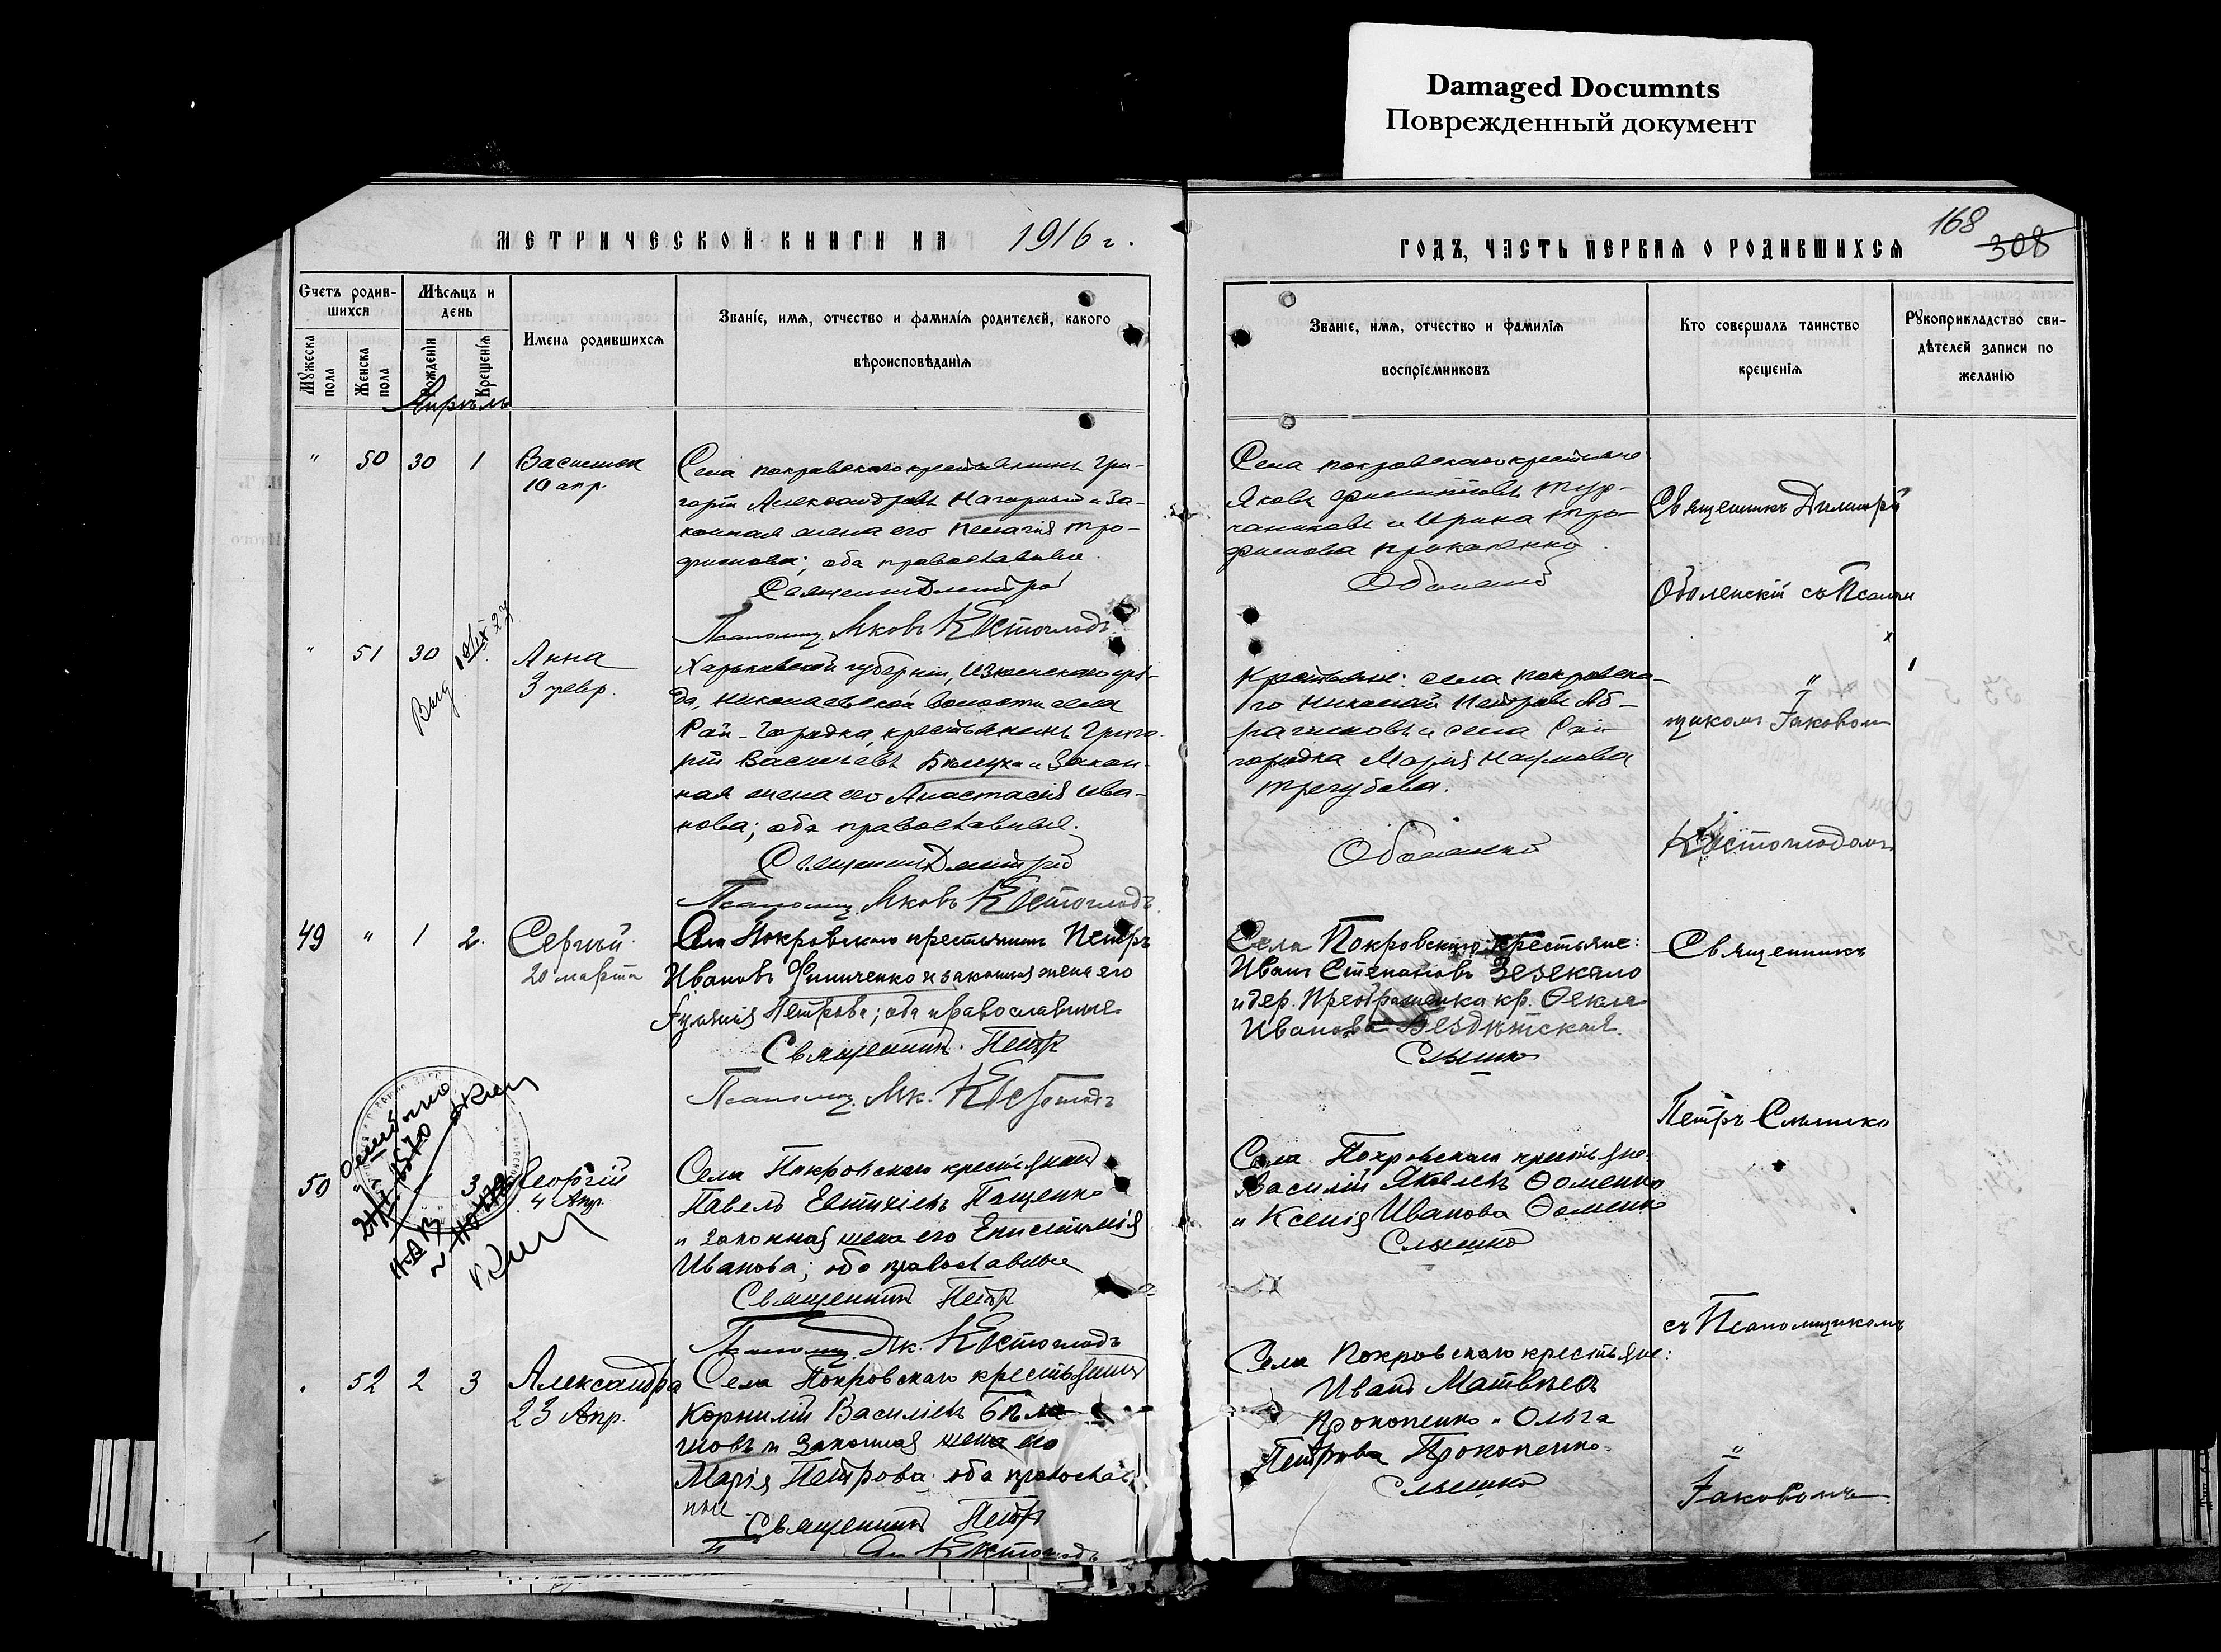 Damaged Documnts
Поврежденный документ
МЕТРИЧЕСКОЙ КНИГИ НА 1916 г.
ГОДЪ, ЧАСТЬ ПЕРВАЯ О РОДИВШИХСЯ
168
308
Счетъ родив-
шихся
Мужеска пола
Женска пола
Мѣсяцъ и
день
Рожденія
Крещенія
Имена родившихся
Званіе, имя, отчество и фамилія родителей, какого
вѣроисповѣданія
Званіе, имя, отчество и фамилія
воспріемниковъ
Кто совершалъ таинство
крещенія
Рукоприкладство сви-
дѣтелей записи по
желанію
Апрѣль
" 50 30 1
10 апр.
Села покровскаго крестьянинъ Гри-
горій Александровъ Нагорный и за-
конная жена его Пелагія Тро-
фимова; оба православные.
Священник Димитрій
Псаломщ. Яковъ Костогладъ
Села покровскаго крестьяне
Яковъ
и Ирина Тро-
фимова Прокопенко
Оболенскій
Священникъ Димитрій
Оболенскій съ Псалом
" 51 30
Анна
3 февр.
Харьковской губерніи, Изюмскаго уѣз-
да, Николаевской волости села
Рай-Городка, крестьянинъ Григо-
рій Васильевъ и закон-
ная жена его Анастасія Ива-
нова; оба православные.
Священник Димитрій
Псаломщ. Яковъ Костогладъ
Крестьяне: села покровска-
го Николай Петровъ Аб-
и села Рай
городка Марія Наумова
Трегубова.
Оболенскій
"
щикомъ Іаковомъ
Костогладомъ
49 " 1 2.
Сергѣй
20 марта
Села Покровскаго крестьянинъ Петръ
Ивановъ и законная жена его
Іуліанія Петрова; оба православные
Священникъ Петръ
Псаломщ. Як. Костогладъ
Села Покровскаго крестьяне:
Иванъ Степановъ Зезекало
и дер. Преображенки кр. Ѳекла
Иванова Бездѣтская.
Слышко
Священникъ
Петръ Слышко
50 " 3
Георгій
4 Апр.
Села Покровскаго крестьянинъ
Павелъ Евтихіевъ Пащенко
и законная жена его Епистимія
Иванова; оба православные
Священникъ Петръ
Псаломщ. Як. Костогладъ
Села Покровскаго крестьяне
Василій Яковлевъ Ѳоменко
и Ксенія Иванова Ѳоменко
Слышко
съ Псаломщикомъ
52 2 3
Александра
23 Апр.
Села Покровскаго крестьянинъ
Корнилій Василіевъ Бѣла-
и законная жена его
Марія Петрова оба православ
ные
Священникъ Петръ
Костогладъ
Села Покровскаго крестьяне:
Иванъ Матвѣевъ
Прокопенко и Ольга
Петрова Прокопенко.
Слышко
"
Іаковомъ